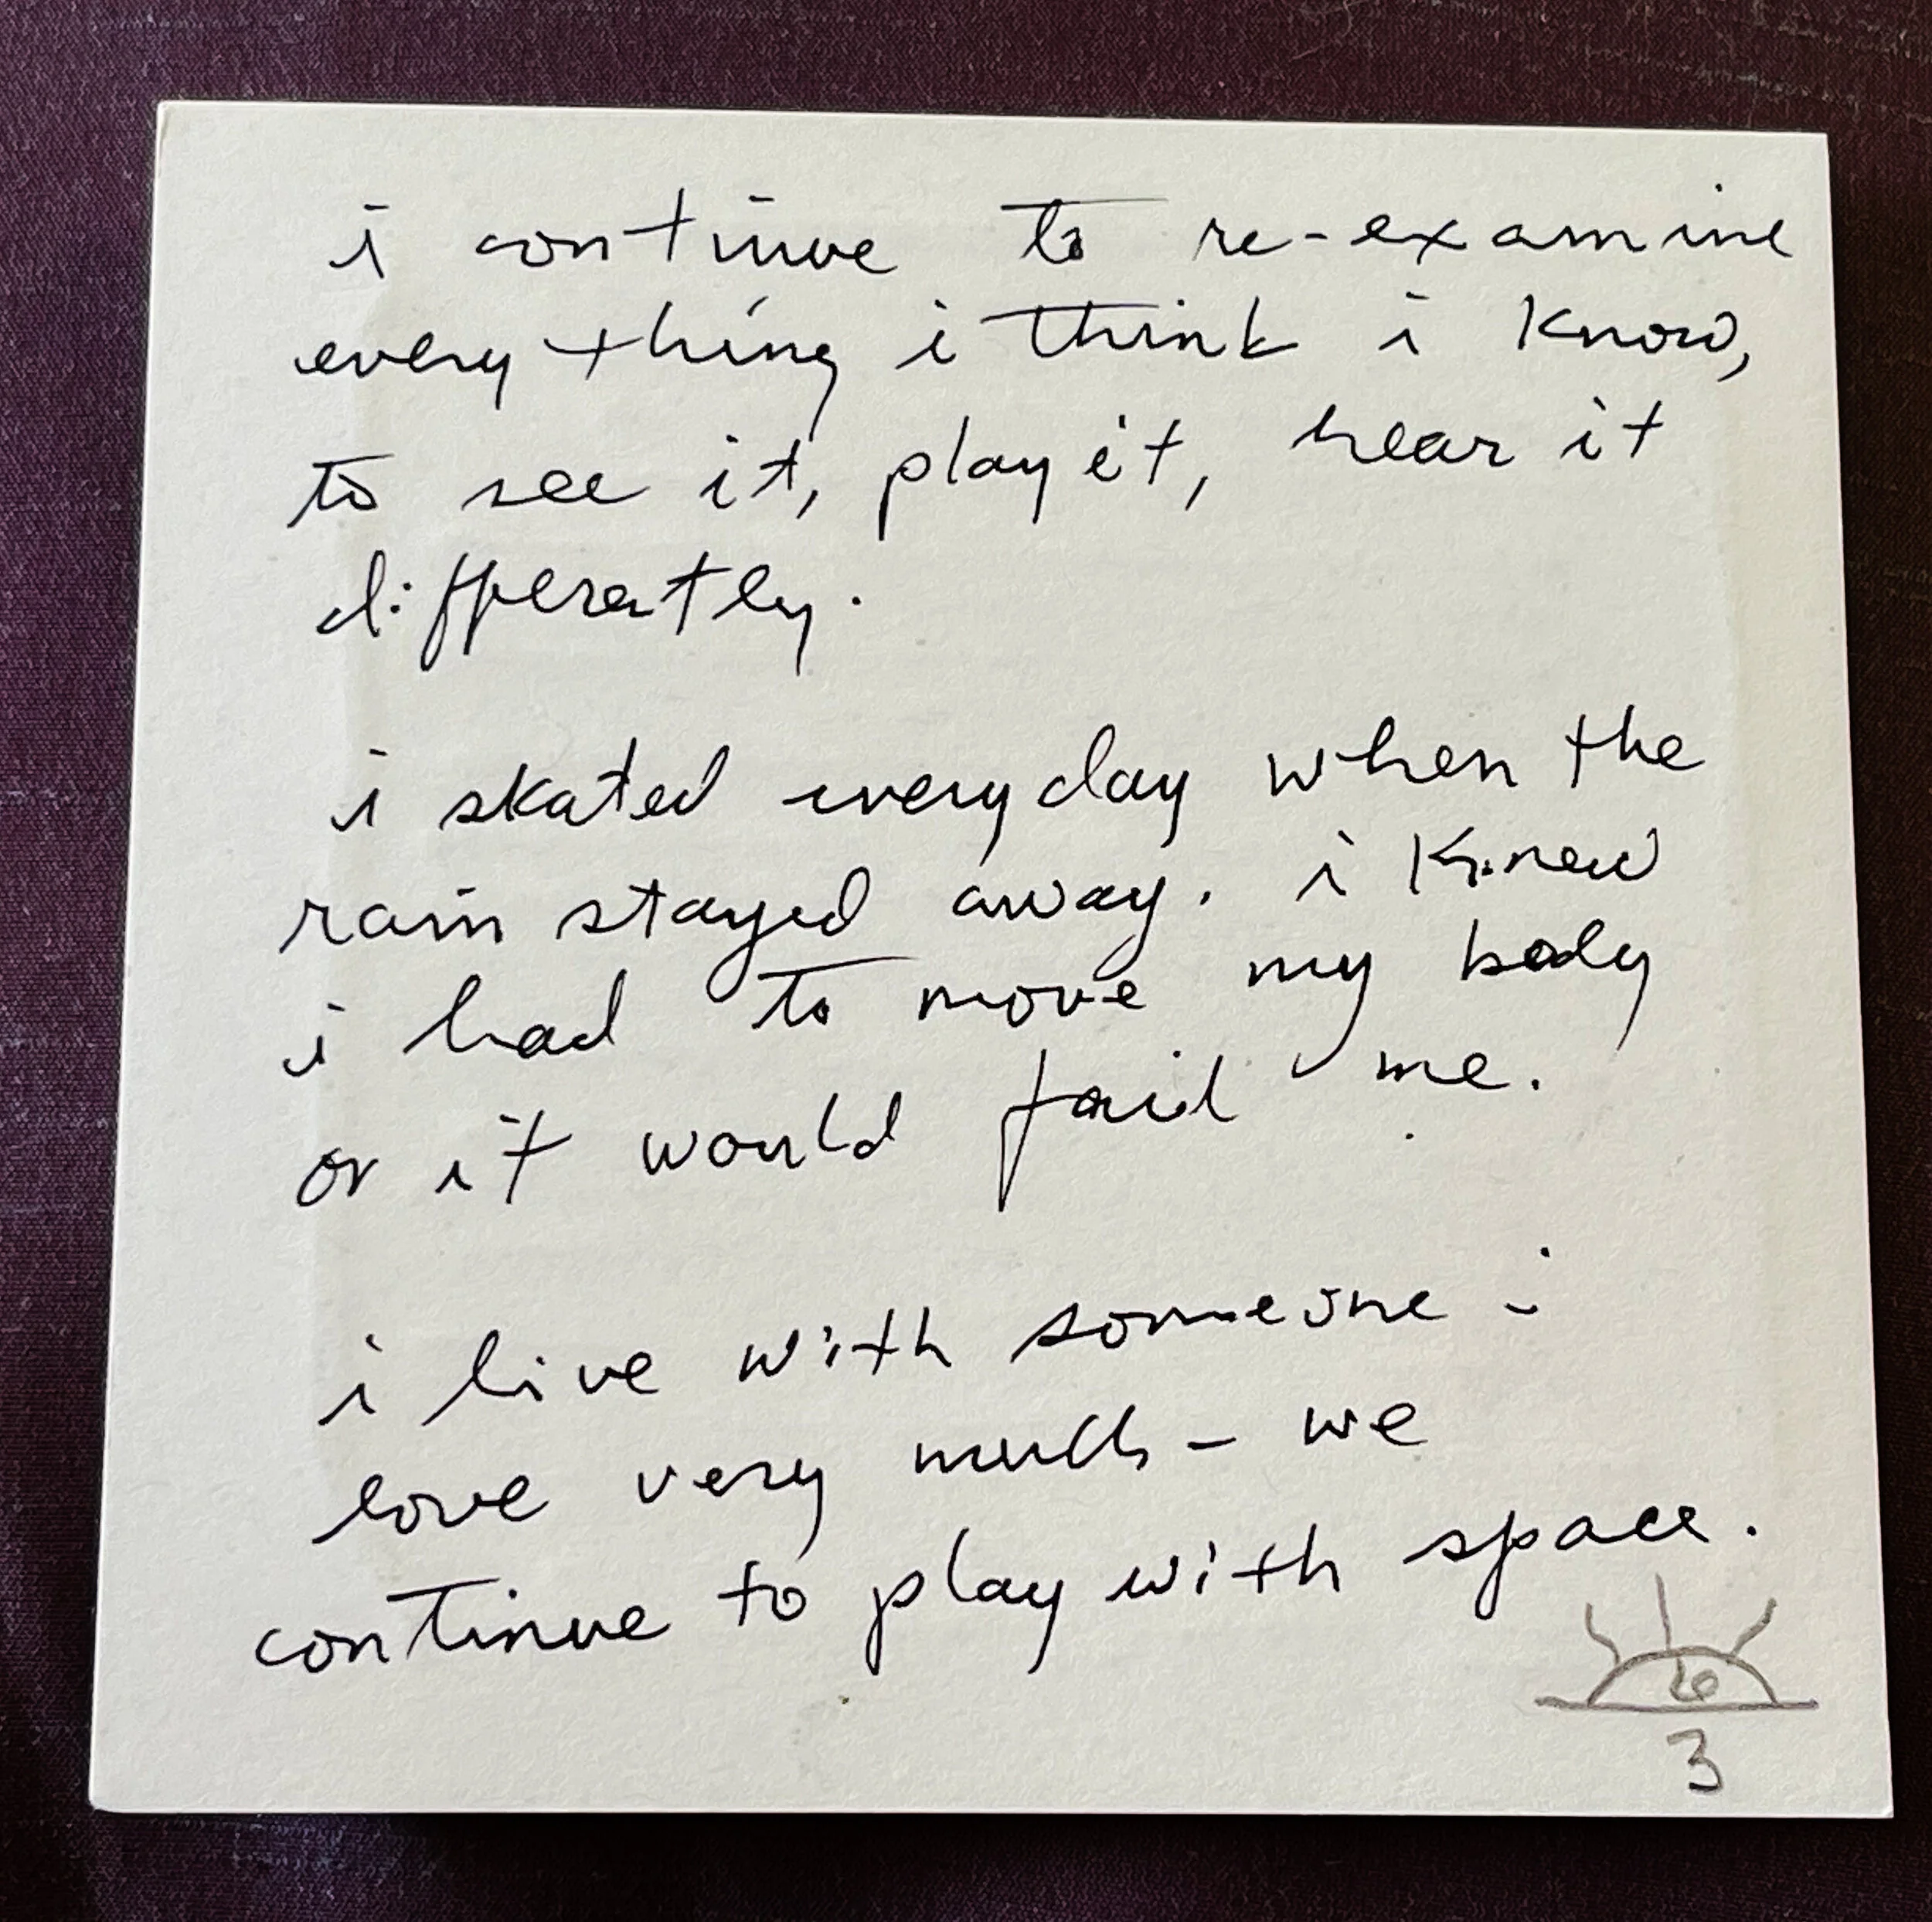 i continue to re-examine
everything i think i know,
to see it, play it, hear it
differently.
i skated everyday when the
rain stayed away. i knew
i had to move my body
or it would fail me.
i live with someone i
love very much - we
continue to play with space.
3